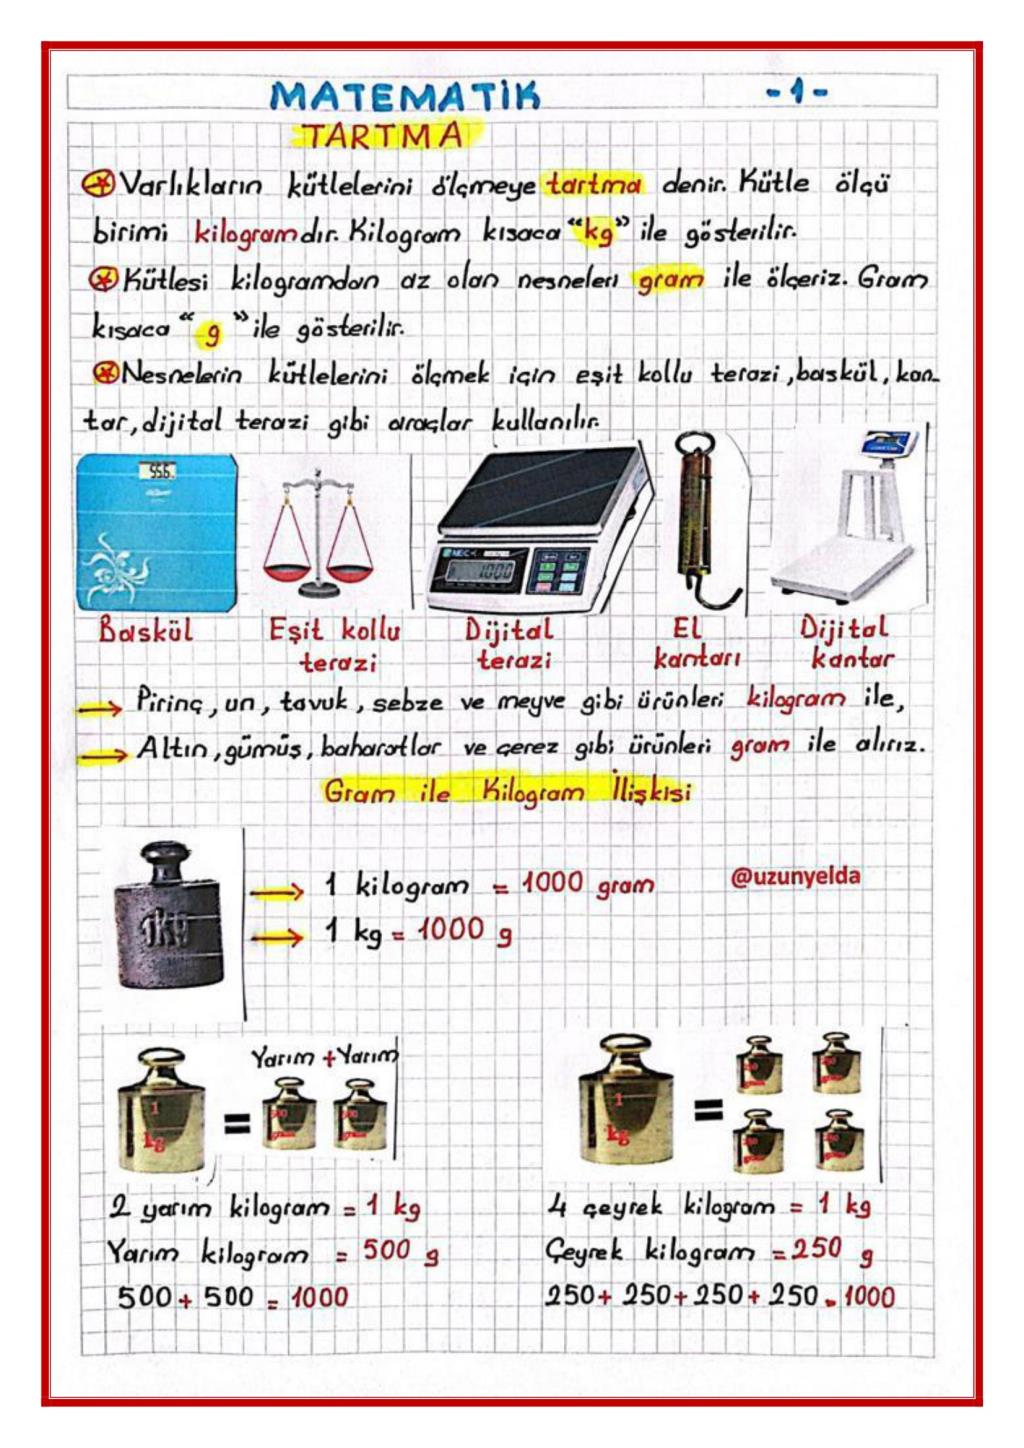 MATEMATİK -1-
TARTMA
Varlıkların kütlelerini ölçmeye tartma denir. Kütle ölçü
birimi kilogramdır. Kilogram kısaca "kg" ile gösterilir.
Kütlesi kilogramdan az olan nesneleri gram ile ölçeriz. Gram
kısaca "g" ile gösterilir.
Nesnelerin kütlelerini ölçmek için eşit kollu terazi, baskül, kan-
tar, dijital terazi gibi araçlar kullanılır.
1000
Baskül Eşit kollu Dijital El Dijital
terazi terazi kantarı kantar
→ Pirinç, un, tavuk, sebze ve meyve gibi ürünleri kilogram ile,
→ Altın, gümüş, baharatlar ve çerez gibi ürünleri gram ile alırız.
Gram ile Kilogram İlişkisi
1KG
→ 1 kilogram = 1000 gram
@uzunyelda
→ 1 kg = 1000 g
Yarım + Yarım
1 kg = 500 gram 500 gram
1 kg = 250 gram 250 gram
250 gram 250 gram
2 yarım kilogram = 1 kg
Yarım kilogram = 500 g
500 + 500 = 1000
4 çeyrek kilogram = 1 kg
Çeyrek kilogram = 250 g
250 + 250 + 250 + 250 = 1000